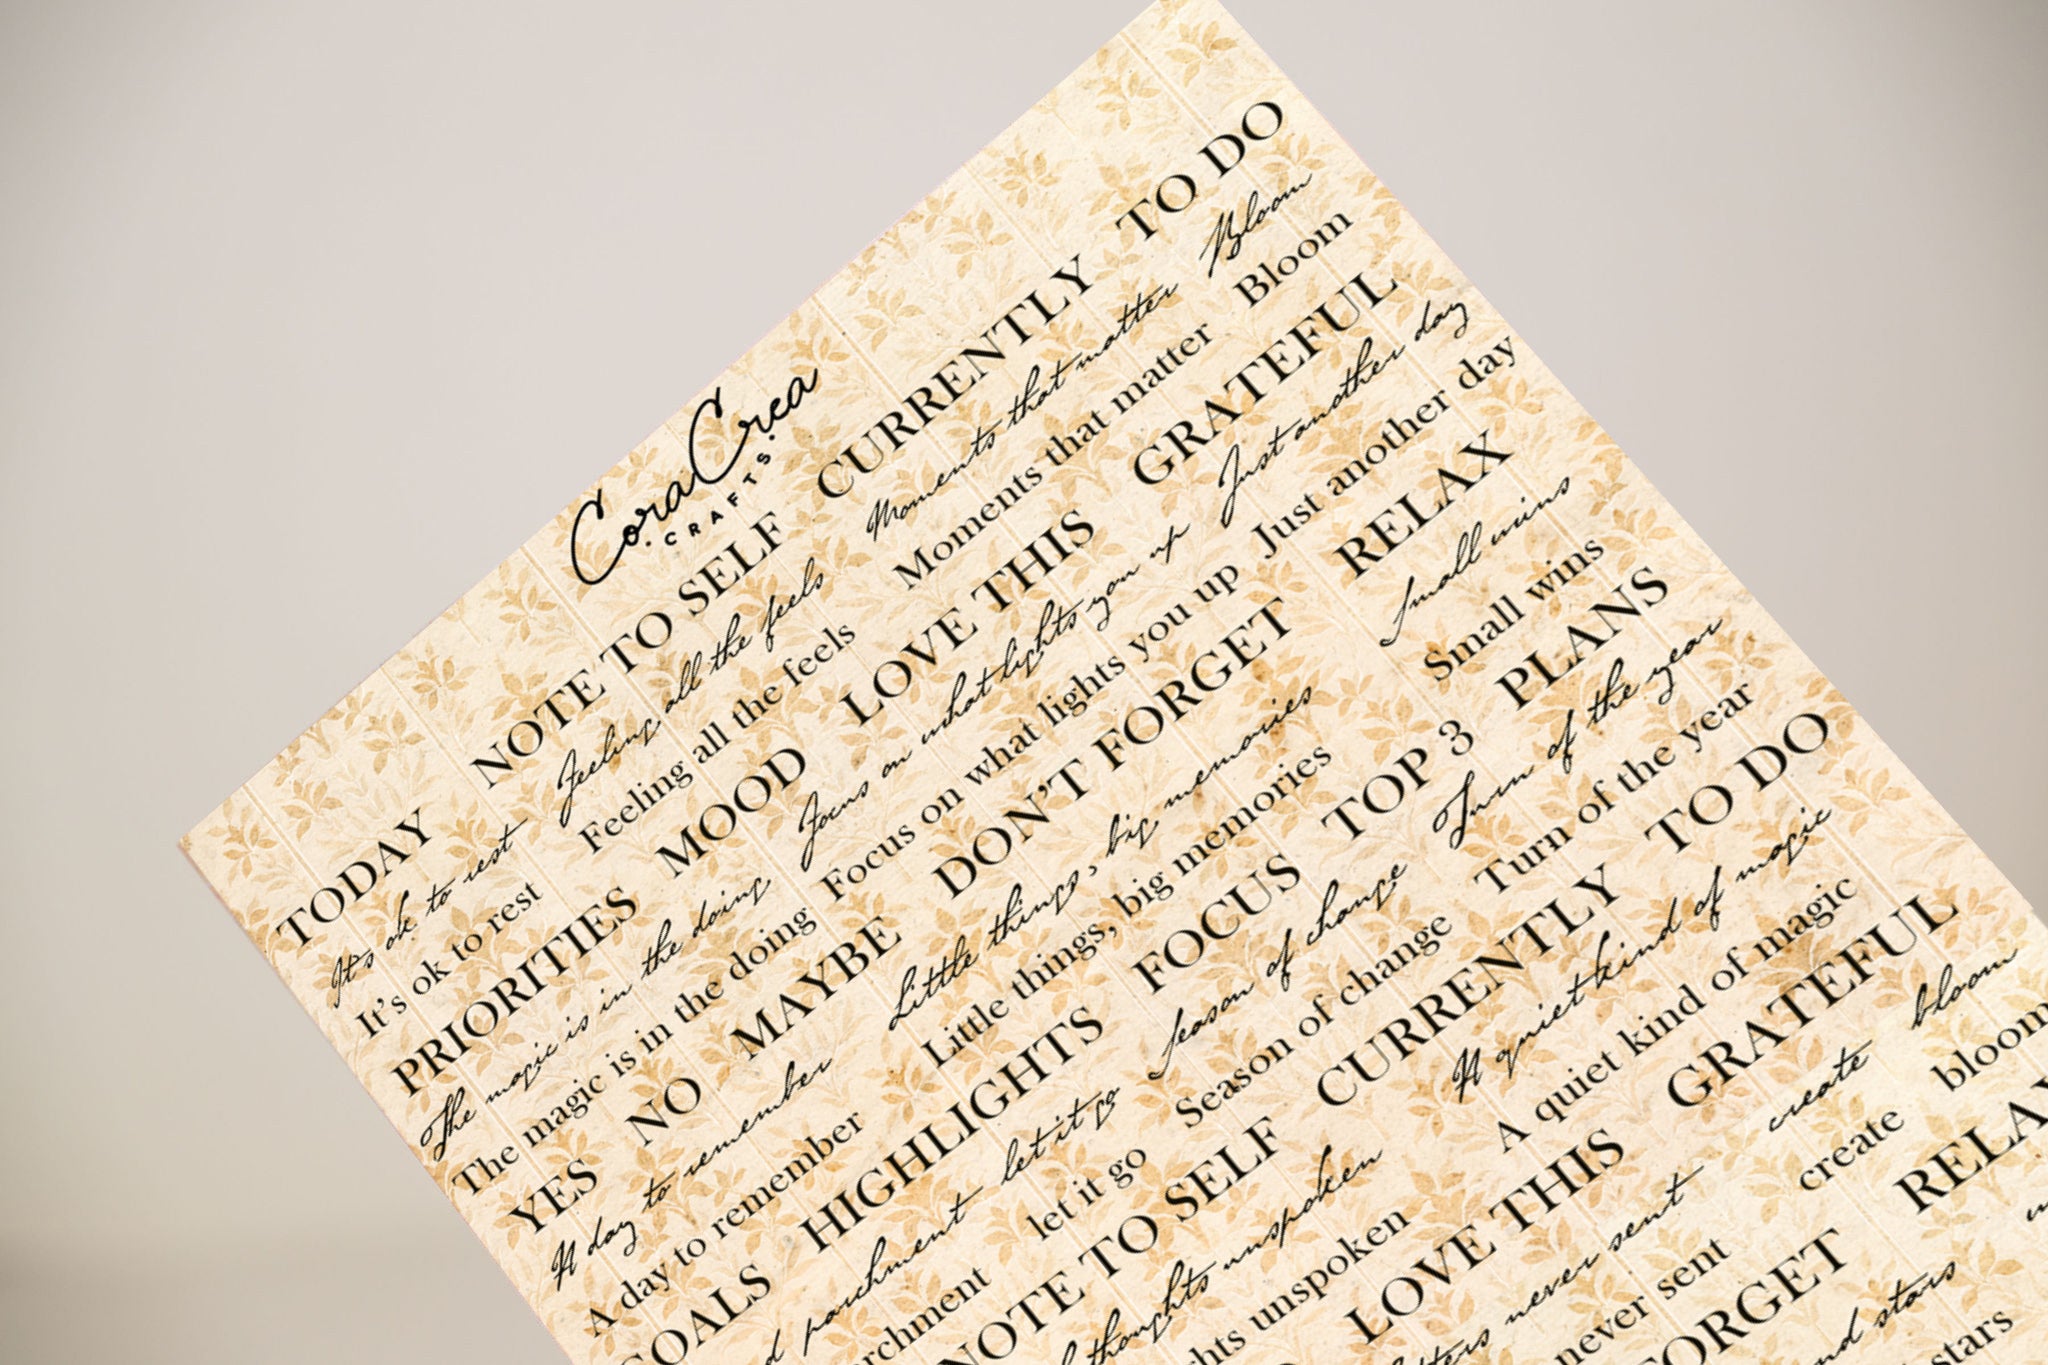 CoraCrea
CRAFTS
TODAY NOTE TO SELF CURRENTLY TO DO
It's ok to rest Feeling all the feels Moments that matter Bloom
It's ok to rest Feeling all the feels Moments that matter Bloom
PRIORITIES MOOD LOVE THIS GRATEFUL
The magic is in the doing Focus on what lights you up Just another day
The magic is in the doing Focus on what lights you up Just another day
YES NO MAYBE DON'T FORGET RELAX
A day to remember Little things, big memories Small wins
A day to remember Little things, big memories Small wins
GOALS HIGHLIGHTS FOCUS TOP 3 PLANS
parchment let it go Season of change Turn of the year
let it go Season of change Turn of the year
NOTE TO SELF CURRENTLY TO DO
thoughts unspoken A quiet kind of magic
unspoken A quiet kind of magic
LOVE THIS GRATEFUL
never sent create bloom
never sent create bloom
RELAX
stars
stars